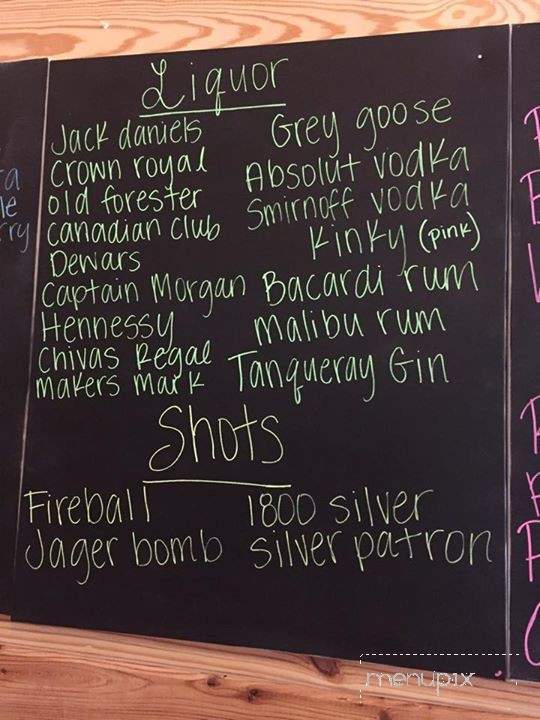 Liquor
Jack daniels
Crown royal
old forester
canadian club
Dewars
Captain Morgan
Hennessy
Chivas Regal
makers mark
Grey goose
Absolut vodka
Smirnoff vodka
Kinky (pink)
Bacardi rum
malibu rum
Tanqueray Gin
Shots
Fireball
Jager bomb
1800 silver
silver patron
menupix